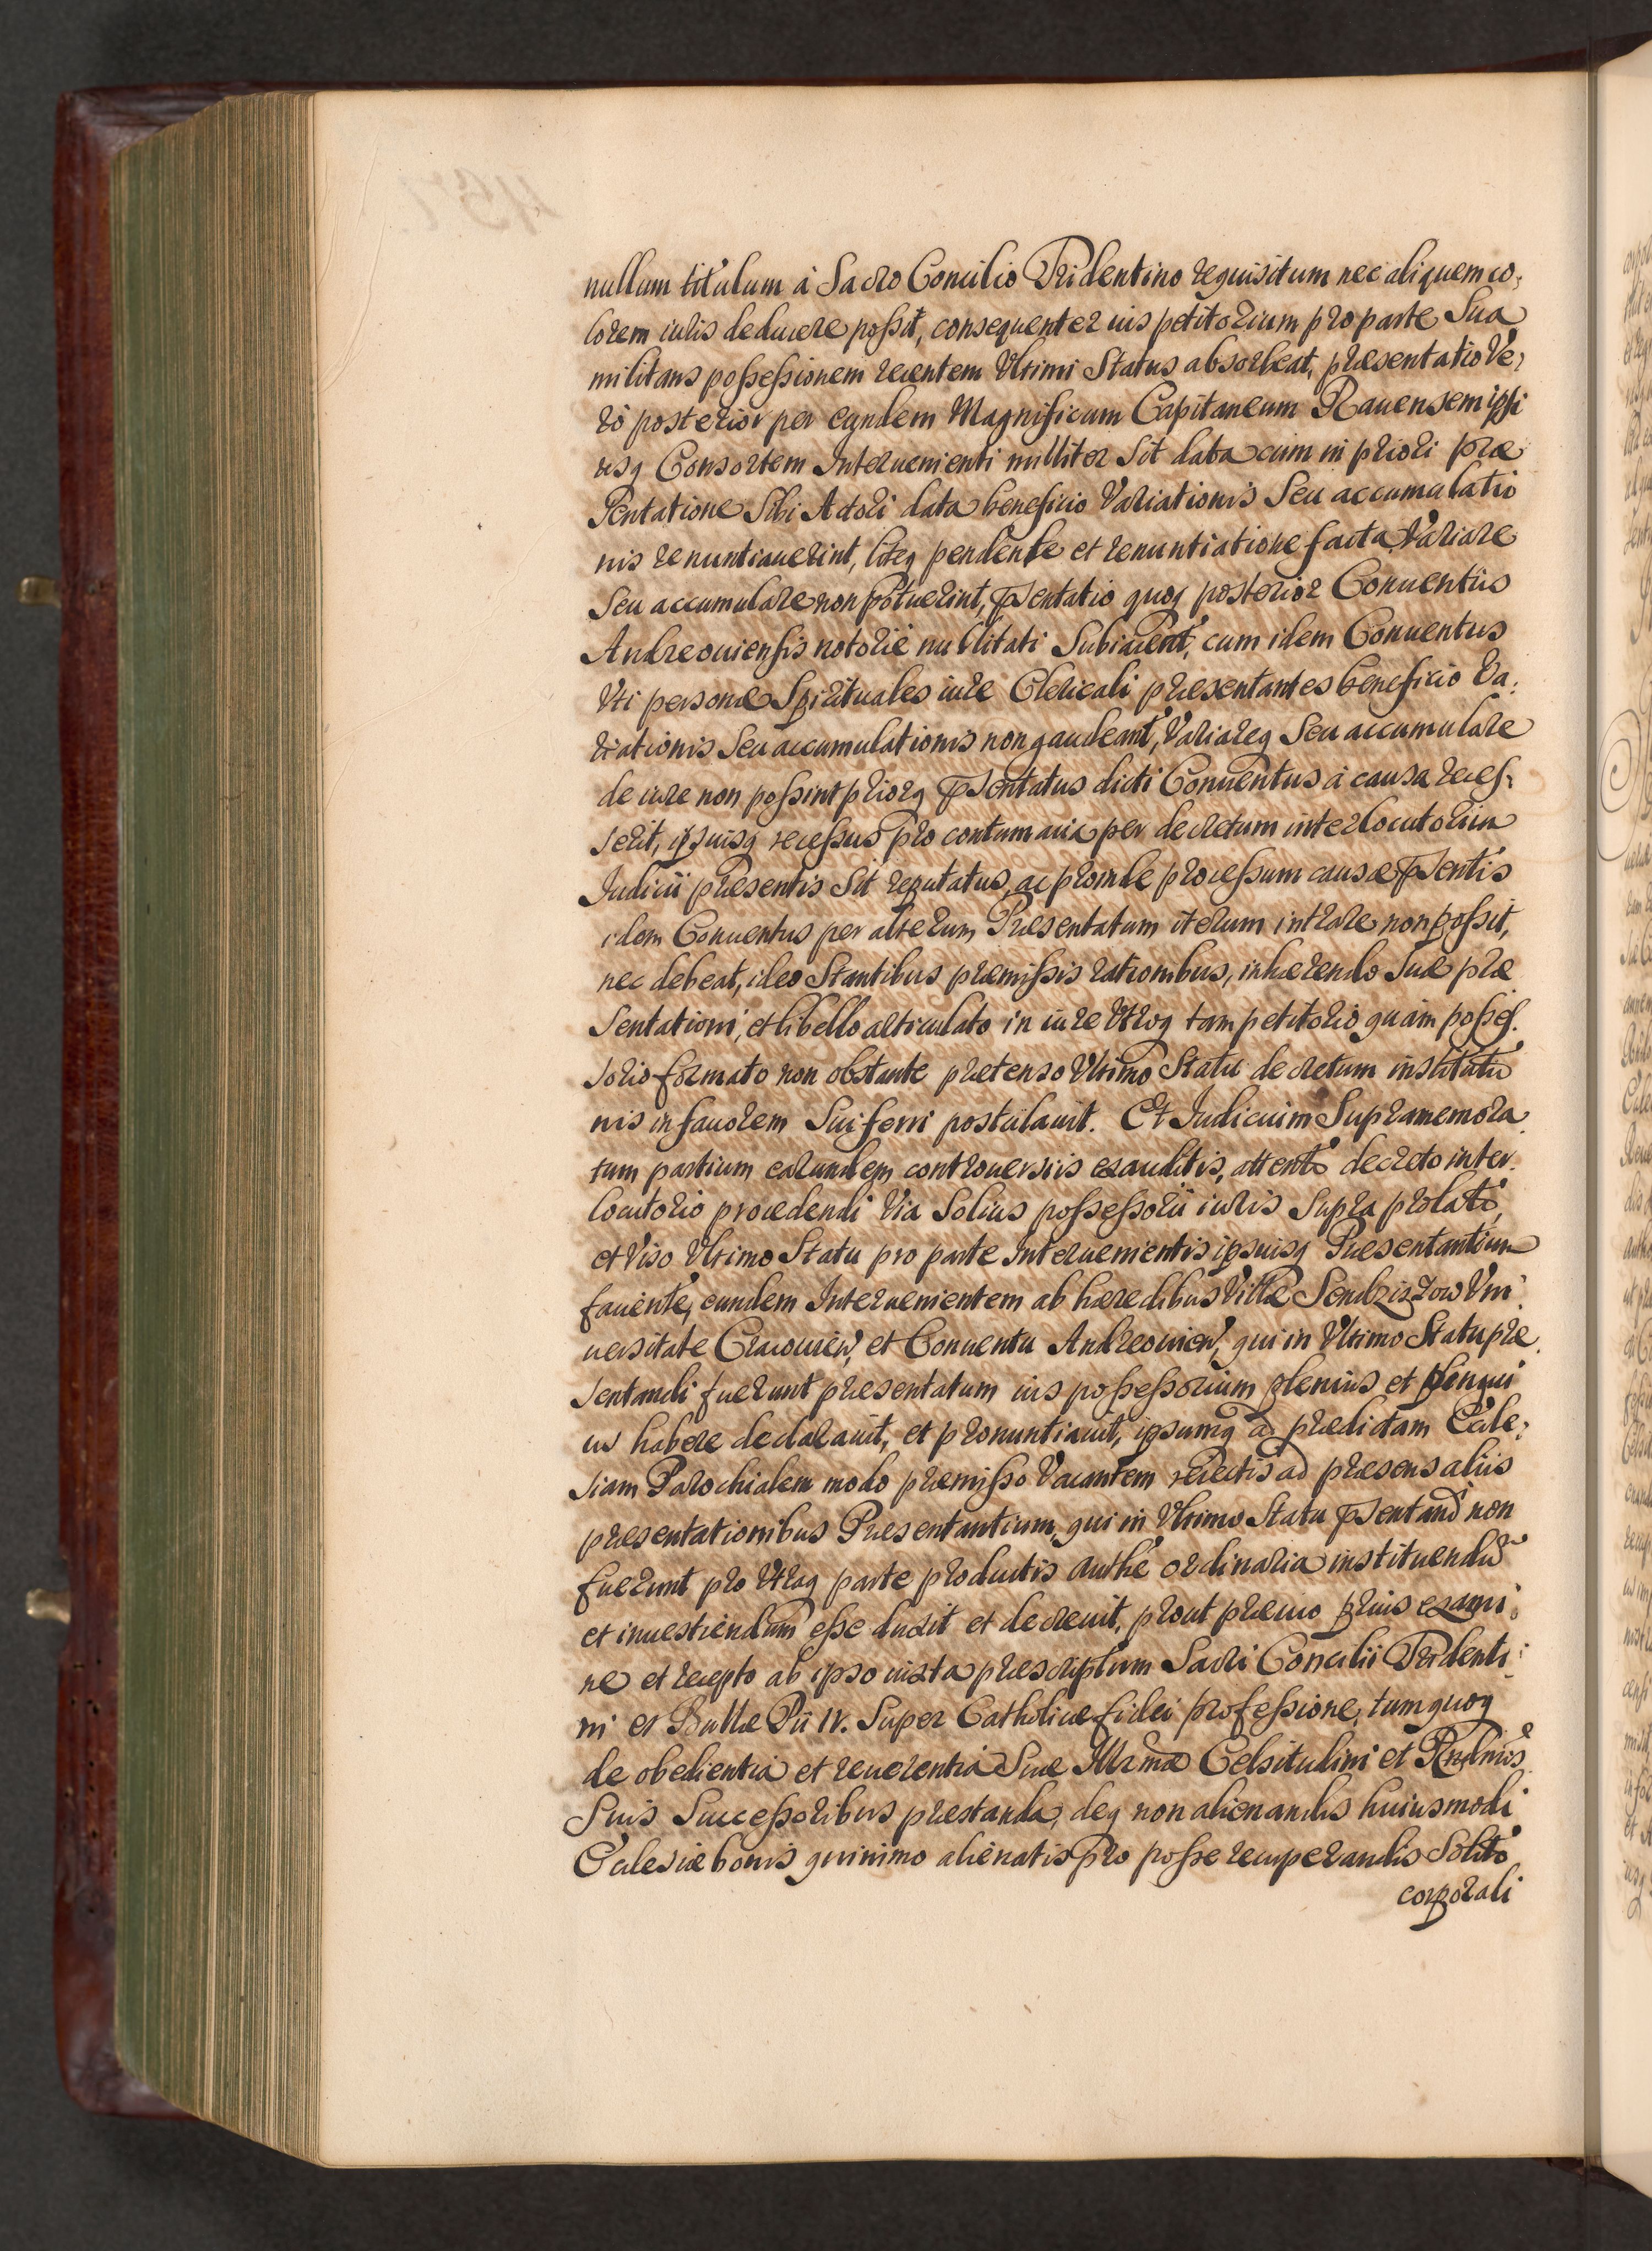 nullum titulum à Sacro Concilio Tridentino requisitum nec aliquem co,
lorem iuris deducere possit, consequenter ius petitorium pro parte Sua
militans possessionem recentem Vltimi Status absorbeat, præsentatio Ve,
rò posterior per eundem Magnificum Capitaneum Rauensem ipsi
usq Consortem Interuenienti nulliter Sit data cum in priori præ
Sentatione Sibi Actori data beneficio Variationis Seu accumulatio
nis renuntiauerint, liteq pendente et renuntiatione facta Variare
Seu accumulare non potuerint, psentatio quoq posterior Conuentûs
Andreouiensis notoriè nullitati Subiaceat, cum idem Conuentus
Vti personæ Spirituales iure Clericali præsentantes beneficio Va,
riationis Seu accumulationis non gaudeant, Variareq Seu accumulare
de iure non possint priorq psentatus dicti Conuentus à causa reces,
serit, ipsiusq recessus pro contumacia per decretum interlocutorium
Iudicii præsentis Sit reputatus, ac proinde processum causæ psentis
idem Conuentus per alterum Præsentatum iterum intrare non possit,
nec debeat, ideo Stantibus præmissis rationibus, inhærendo Suæ præ
Sentationi, et libello articulato in iure Vtroq tam petitorio quàm posses.
sorio formato non obstante prætenso Vltimo Statu decretum institutio
nis in fauorem Sui ferri postulauit. Et Iudicium Supramemora
tum partium earundem controuersiis exauditis, attento decreto inter.
locutorio procedendi Via Solius possessorii iuris Supra prolato,
et Viso Vltimo Statu pro parte Interuenientis ipsiusq Præsentantium
fauente, eundem Interuenientem ab hæredibus Villæ Sendziszow Vni
uersitate Cracouien, et Conuentu Andreouien, qui in Vltimo Statu præ
sentandi fuerunt præsentatum ius possessorium plenius et pingui
us habere declarauit, et pronuntiauit, ipsumq ad prædictam Eccle,
siam Parochialem modo præmisso Vacantem reiectis ad præsens aliis
præsentationibus Præsentantium, qui in Vltimo Statu psentand non
fuerunt pro Vtraq parte productis authe ordinaria instituendũ
et inuestiendum esse duxit et decreuit, prout præuio prius exami,
ne et recepto ab ipso iuxta præscriptum Sacri Concilii Tridenti,
ni et Bullæ Pii IV. Super Catholicæ fidei professione, tum quoq
de obedientia et reuerentia Suæ Illrmæ Celsitudini et Rndmis
Suis Successoribus præstanda, deq non alienandis huiusmodi
Ecclesiæ bonis quinimo alienatis pro posse recuperandis Solito
corporali